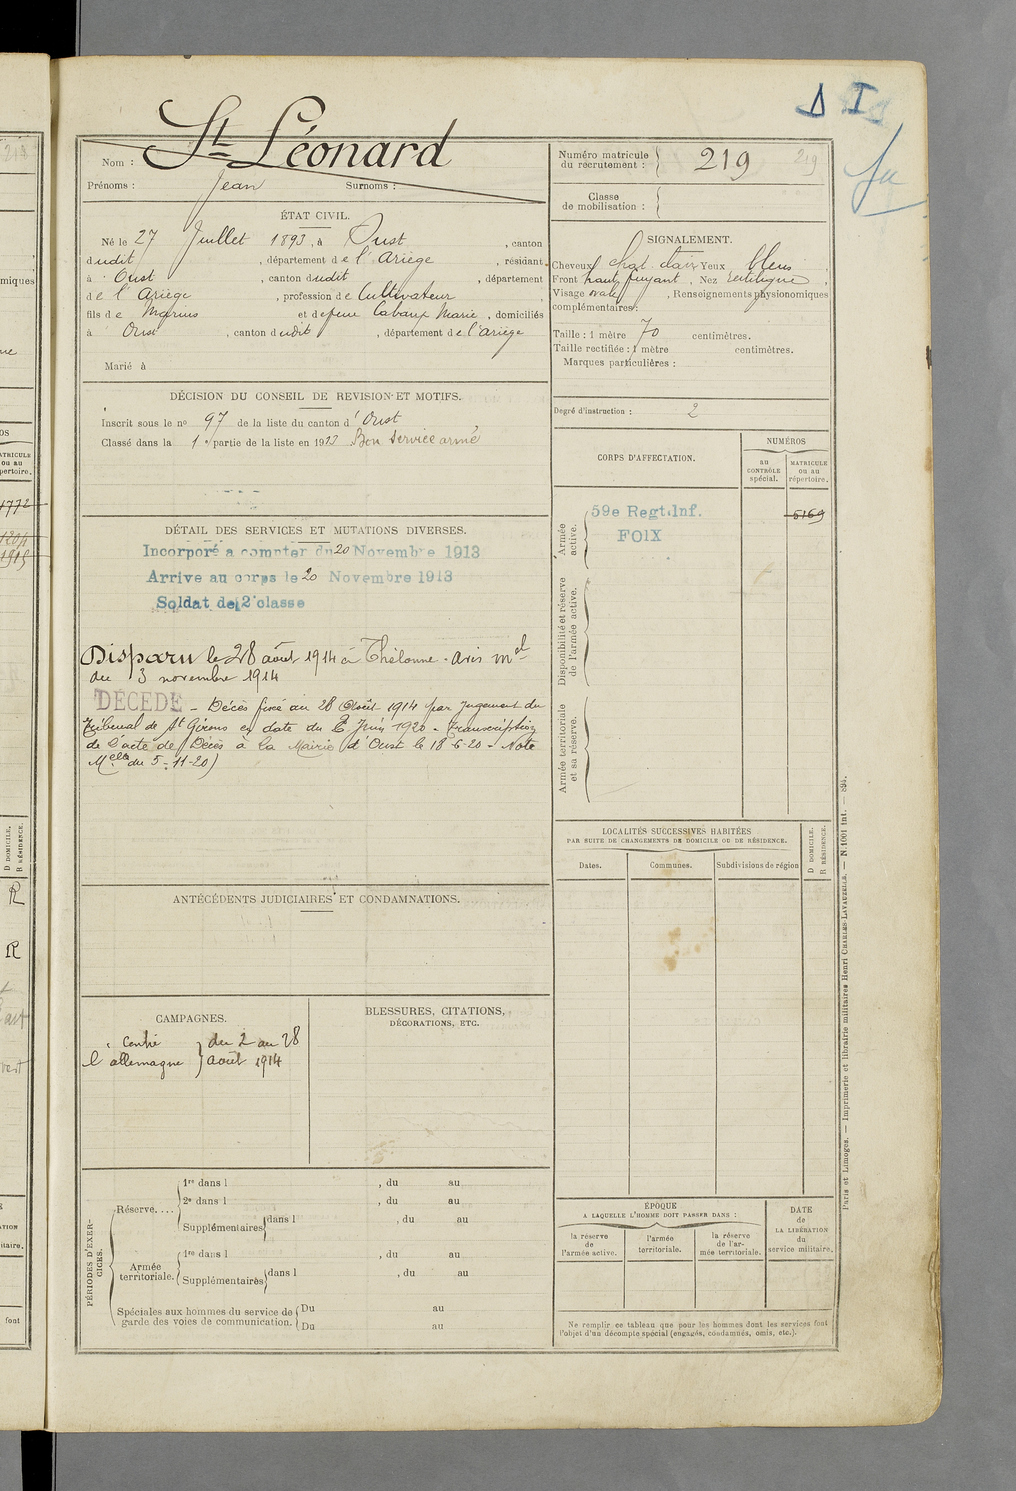 D I
St Léonard
Nom :
Prénoms : Jean Surnoms :
Numéro matricule du recrutement : 219 219
Classe de mobilisation :
ÉTAT CIVIL.
Né le 27 Juillet 1893, à Oust , canton
dudit , département de l'Ariège , résidant
à Oust , canton dudit , département
de l'Ariège , profession de Cultivateur ,
fils de Marius et de feue Cabaup Marie , domiciliés
à Oust , canton dudit , département de l'ariège
Marié à
SIGNALEMENT.
Cheveux chat. clair Yeux bleus ,
Front haut fuyant , Nez rectiligne ,
Visage ovale , Renseignements physionomiques
complémentaires :
Taille : 1 mètre 70 centimètres.
Taille rectifiée : 1 mètre centimètres.
Marques particulières :
Degré d'instruction : 2
DÉCISION DU CONSEIL DE REVISION ET MOTIFS.
Inscrit sous le no 97 de la liste du canton d'Oust
Classé dans la 1e partie de la liste en 1913 Bon service armé
CORPS D'AFFECTATION.
NUMÉROS
au CONTRÔLE spécial.
MATRICULE ou au répertoire.
Armée active.
59e Regt.Inf.
FOIX
5169
Disponibilité et réserve de l'armée active.
Armée territoriale et sa réserve.
DÉTAIL DES SERVICES ET MUTATIONS DIVERSES.
Incorporé a compter du 20 Novembre 1913
Arrive au corps le 20 Novembre 1913
Soldat de 2e classe
Disparu le 28 août 1914 à Thélonne. avis mel
du 3 novembre 1914
DÉCÉDÉ - Décès fixé au 28 Août 1914 par jugement du
Tribunal de St Girons en date du 2 Juin 1920 - Transcription
de l'acte de Décès à la Mairie d'Oust le 18-6-20 - Note
Melle du 5-11-20)
LOCALITÉS SUCCESSIVES HABITÉES
PAR SUITE DE CHANGEMENTS DE DOMICILE OU DE RÉSIDENCE.
Dates.
Communes.
Subdivisions de région
D DOMICILE.
R RÉSIDENCE.
ANTÉCÉDENTS JUDICIAIRES ET CONDAMNATIONS.
CAMPAGNES.
contre l'allemagne } du 2 au 28 août 1914
BLESSURES, CITATIONS,
DÉCORATIONS, ETC.
PÉRIODES D'EXERCICES.
Réserve....
1re dans l , du au
2e dans l , du au
Supplémentaires dans l , du au
Armée territoriale.
1re dans l , du au
Supplémentaires dans l , du au
Spéciales aux hommes du service de garde des voies de communication.
Du au
Du au
ÉPOQUE
A LAQUELLE L'HOMME DOIT PASSER DANS :
la réserve de l'armée active.
l'armée territoriale.
la réserve de l'armée territoriale.
DATE de LA LIBÉRATION du service militaire.
Ne remplir ce tableau que pour les hommes dont les services font
l'objet d'un décompte spécial (engagés, condamnés, omis, etc.).
Paris et Limoges. — Imprimerie et librairie militaires Henri CHARLES-LAVAUZELLE. — N. 1001 int. — 894.